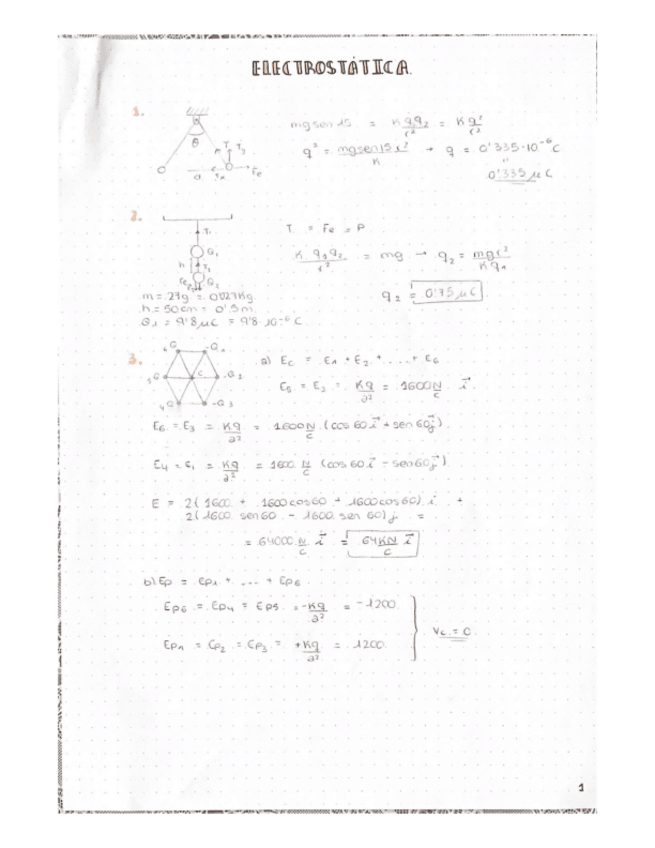 ELECTROSTÁTICA.
1.
mg sen 15 = K q1 q2 / r² = K q² / r²
q² = mg sen 15 r² / K → q = 0'335·10⁻⁶ C
0'335 μC
θ
d
Fe
2.
T = Fe = P
T1
Q1
h
Q2
K q1 q2 / r² = mg → q2 = mg r² / K q1
m = 27g = 0'027 Kg.
h = 50cm = 0'5m.
Q1 = 9'8 μC = 9'8·10⁻⁶ C.
q2 = 0'75 μC
3.
6 Q -Q 1
5 Q C -Q 2
4 Q -Q 3
a) Ec = E1 + E2 + ... + E6
E5 = E2 = Kq / a² = 1600 N/C i⃗.
E6 = E3 = Kq / a² = 1600 N/C (cos 60 i⃗ + sen 60 j⃗)
E4 = E1 = Kq / a² = 1600 N/C (cos 60 i⃗ - sen 60 j⃗)
E = 2(1600 + 1600 cos 60 + 1600 cos 60) i +
2(1600 sen 60 - 1600 sen 60) j =
= 64000 N/C i⃗ = 64 KN/C i⃗
b) Ep = Ep1 + ... + Ep6
Ep6 = Ep4 = Ep5 = -Kq / a² = -1200
Vc = 0
Ep1 = Ep2 = Ep3 = +Kq / a² = 1200
1